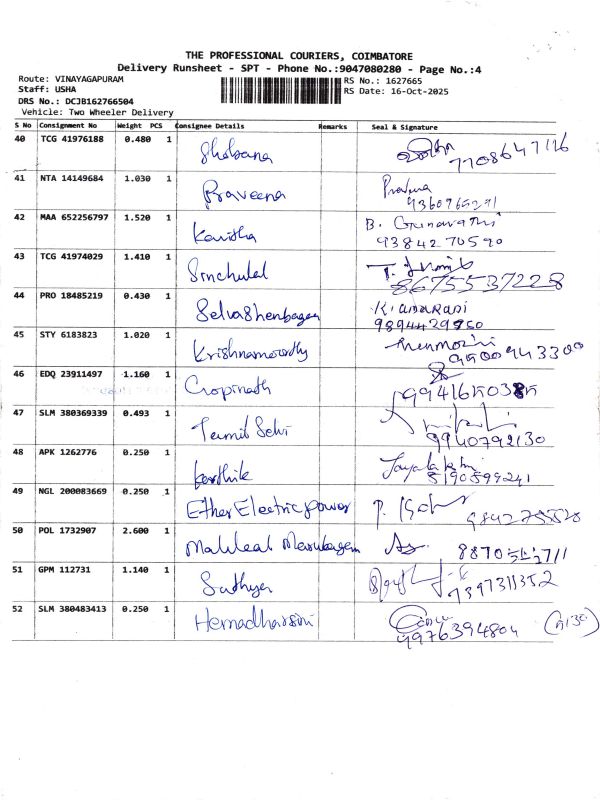 THE PROFESSIONAL COURIERS, COIMBATORE
Delivery Runsheet - SPT - Phone No.:9047080280 - Page No.:4
Route: VINAYAGAPURAM
RS No.: 1627665
Staff: USHA
RS Date: 16-Oct-2025
DRS No.: DCJB162766504
Vehicle: Two Wheeler Delivery
S No Consignment No Weight PCS Consignee Details Remarks Seal & Signature
40 TCG 41976188 0.480 1 Shobana 7708647116
41 NTA 14149684 1.030 1 Praveena
9360965291
42 MAA 652256797 1.520 1 Kavitha B. Gunavathi
9384270590
43 TCG 41974029 1.410 1
8675537228
44 PRO 18485219 0.430 1 Selvashenbagam K. amarani
9894429950
45 STY 6183823 1.020 1 Krishnamoorthy
9500943300
46 EDQ 23911497 1.160 1 Gopinath
47 SLM 380369339 0.493 1 Tamil Selvi
9940792130
48 APK 1262776 0.250 1 Karthik
8190599241
49 NGL 200083669 0.250 1 Ether Electric power
50 POL 1732907 2.600 1
51 GPM 112731 1.140 1 Sathya
7397311352
52 SLM 380483413 0.250 1 Hemadharsini
9976394804